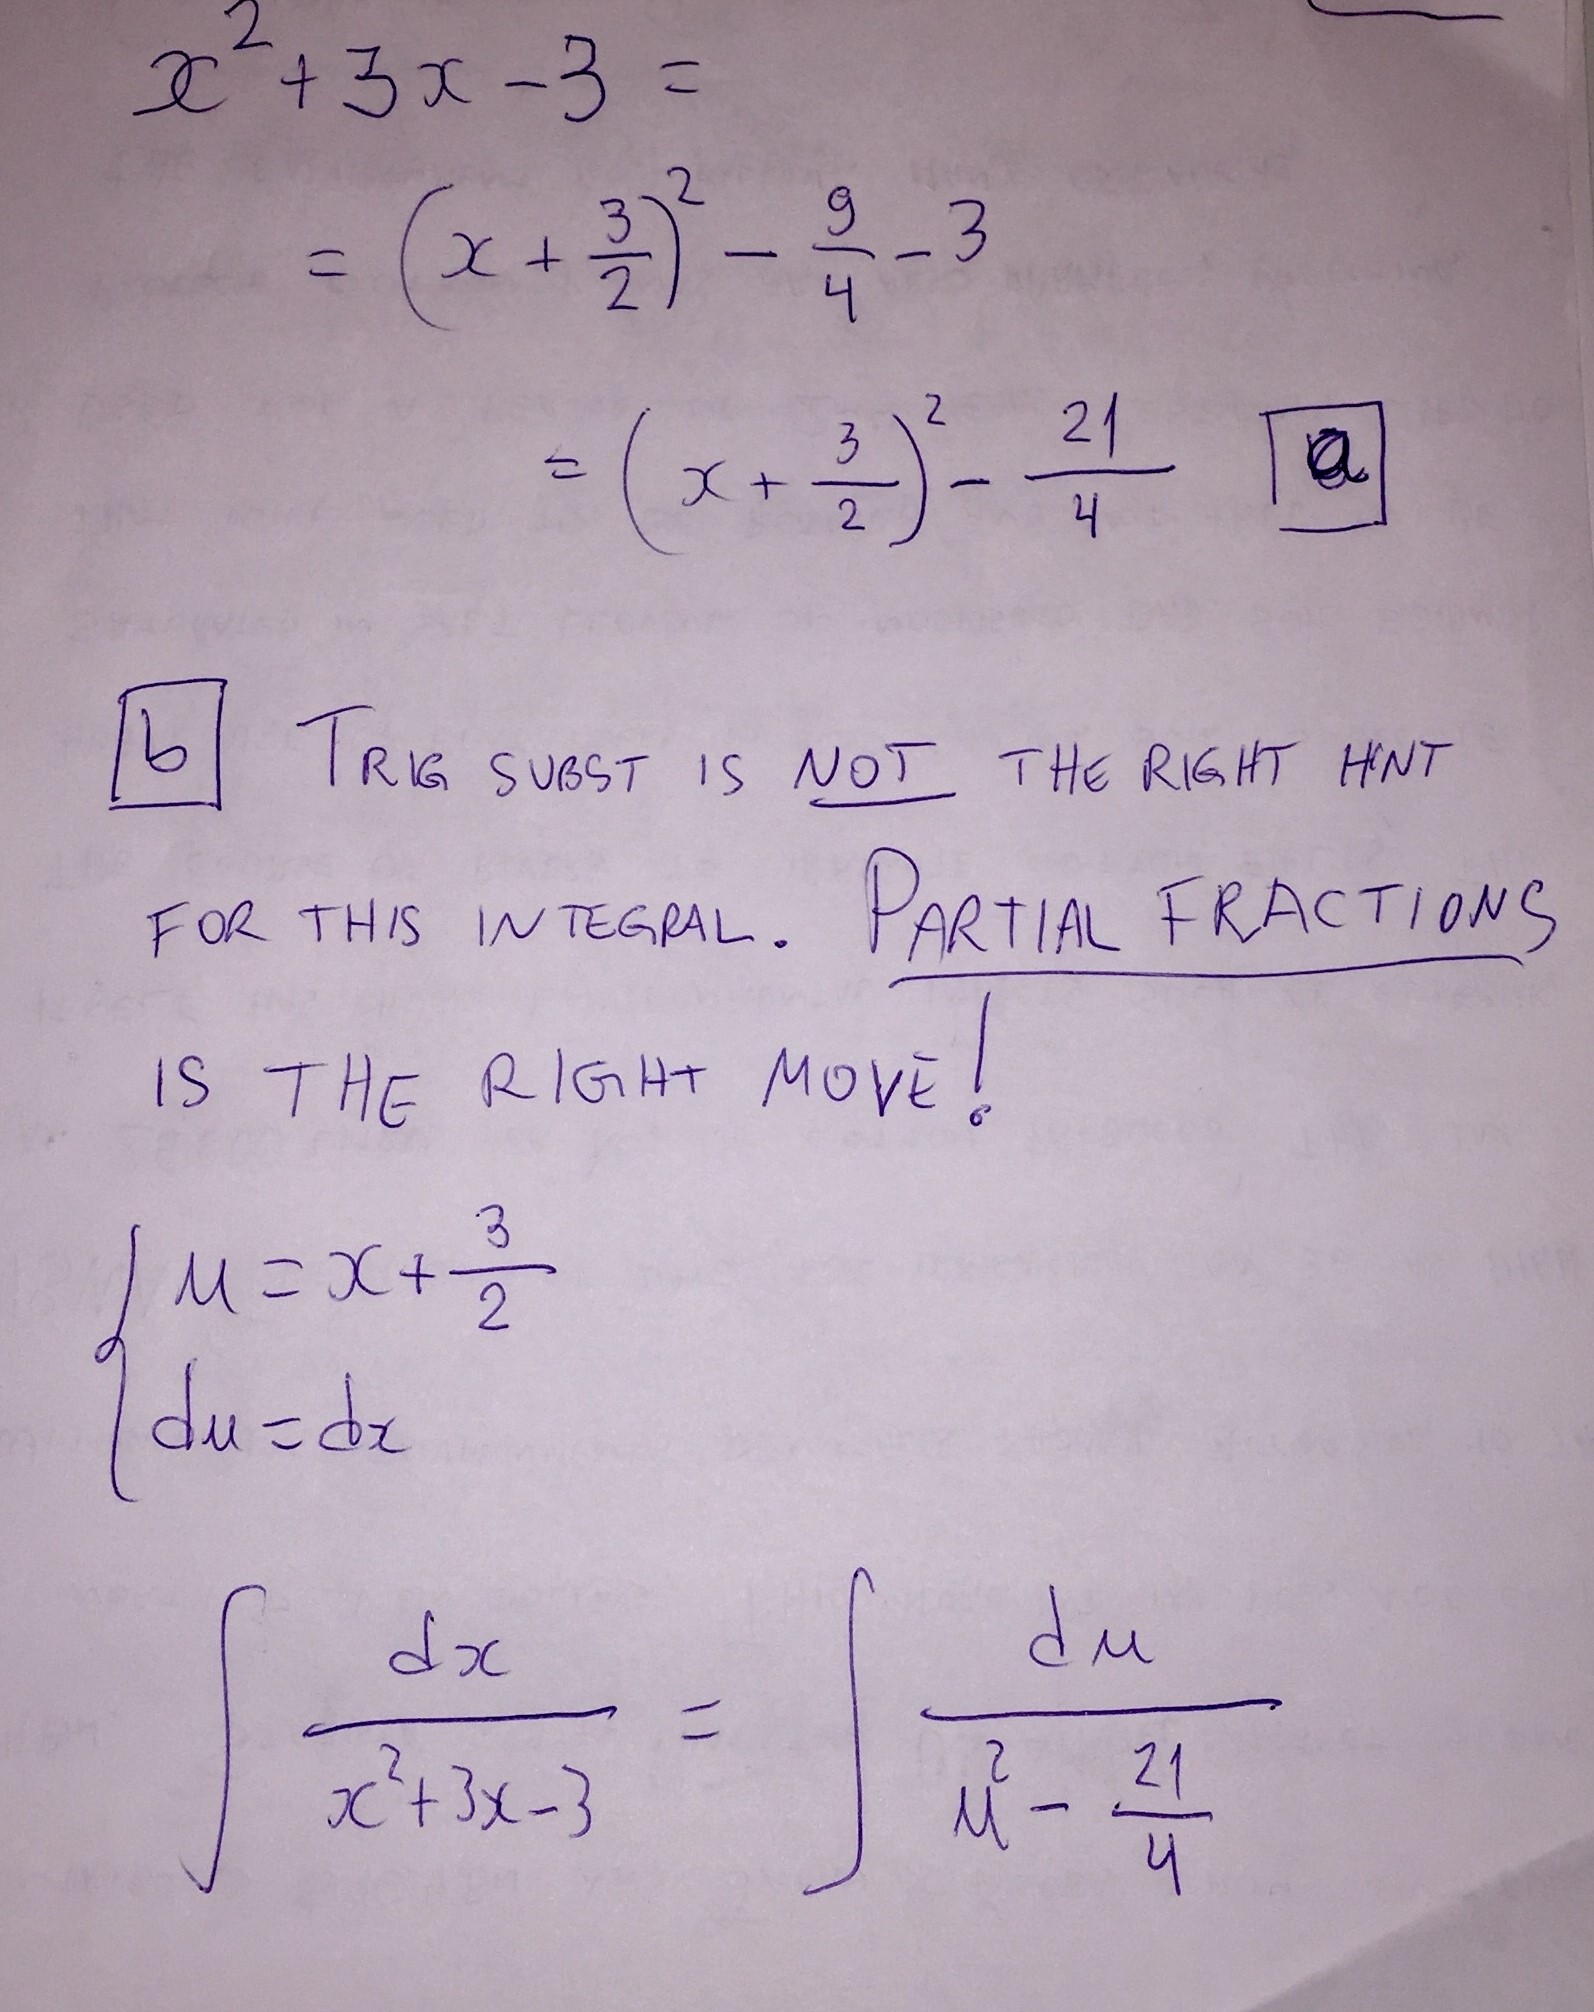 x² + 3x - 3 =
= (x + 3/2)² - 9/4 - 3
= (x + 3/2)² - 21/4 a
b TRIG SUBST IS NOT THE RIGHT HINT
FOR THIS INTEGRAL. PARTIAL FRACTIONS
IS THE RIGHT MOVE!
{ u = x + 3/2
du = dx
∫ dx/(x² + 3x - 3) = ∫ du/(u² - 21/4)